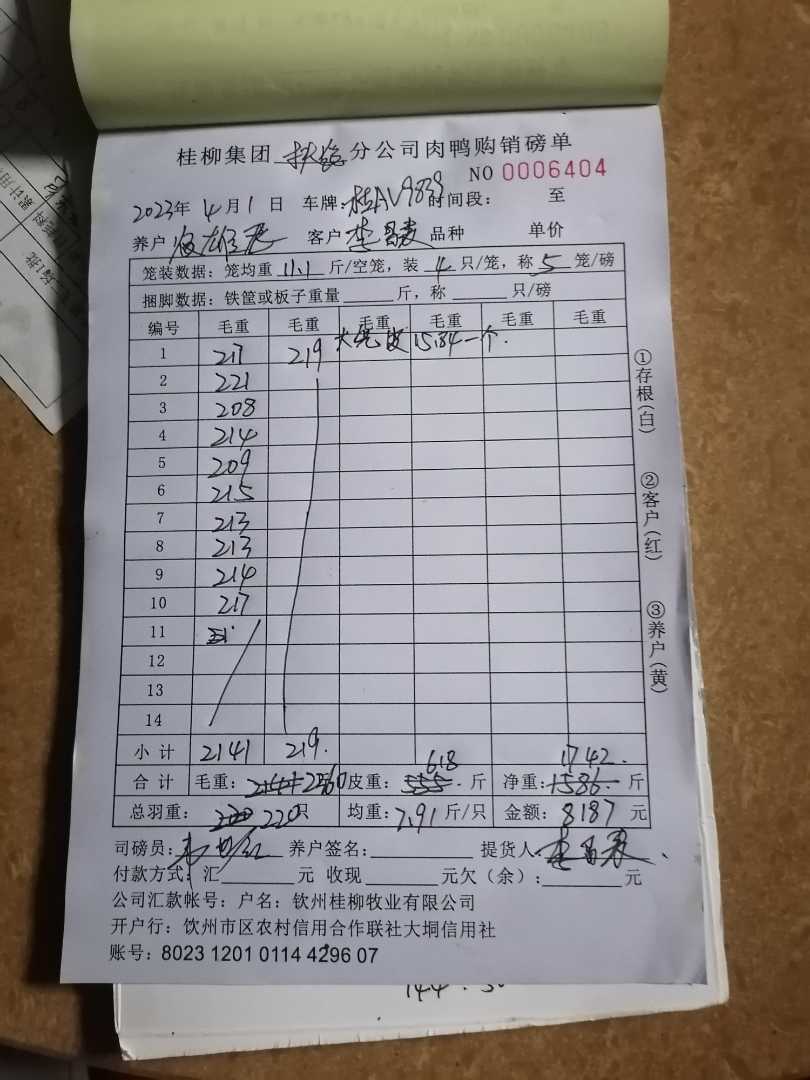 桂柳集团 分公司肉鸭购销磅单
NO 0006404
2023年 4月1日 车牌:桂AV9839 时间段: 至
养户 客户 品种 单价
笼装数据: 笼均重 11.1 斤/空笼, 装 4 只/笼, 称 5 笼/磅
捆脚数据: 铁筐或板子重量 斤, 称 只/磅
编号 毛重 毛重 毛重 毛重 毛重 毛重
1 217 219 15.84一个.
2 221
3 208
4 214
5 209
6 215
7 213
8 213
9 214
10 217
11
12
13
14
小计 2141 219. 618 1742.
合计 毛重: 2141 2360 皮重: 555. 斤 净重: 1586. 斤
总羽重: 220只 均重: 7.91 斤/只 金额: 8187 元
司磅员: 养户签名: 提货人:
付款方式: 汇 元 收现 元欠(余): 元
公司汇款帐号: 户名: 钦州桂柳牧业有限公司
开户行: 钦州市区农村信用合作联社大垌信用社
账号: 8023 1201 0114 4296 07
①存根(白)
②客户(红)
③养户(黄)